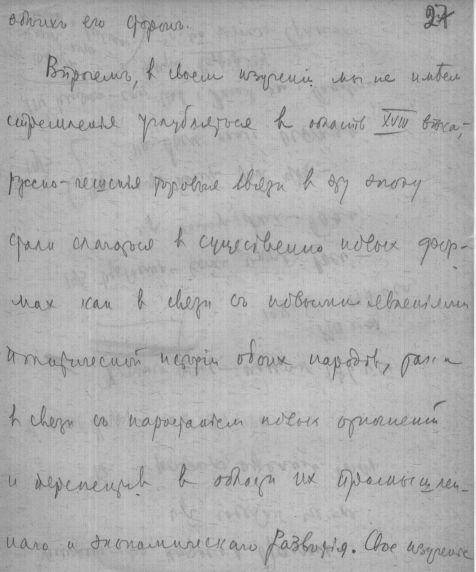 27
обоихъ его сторонъ.
Впрочемъ, въ своемъ изученіи мы не имѣем
стремленія углубляться въ область XVIII вѣка,
русско-чешскія торговыя связи въ эту эпоху
стали слагаться въ существенно новыхъ фор-
мах как въ связи съ новыми явленіями
политической исторіи обоих народовъ, так и
въ связи съ наростаніем новыхъ отношеній
и перспектив въ области их промышлен-
наго и экономическаго развитія. Свое изученіе